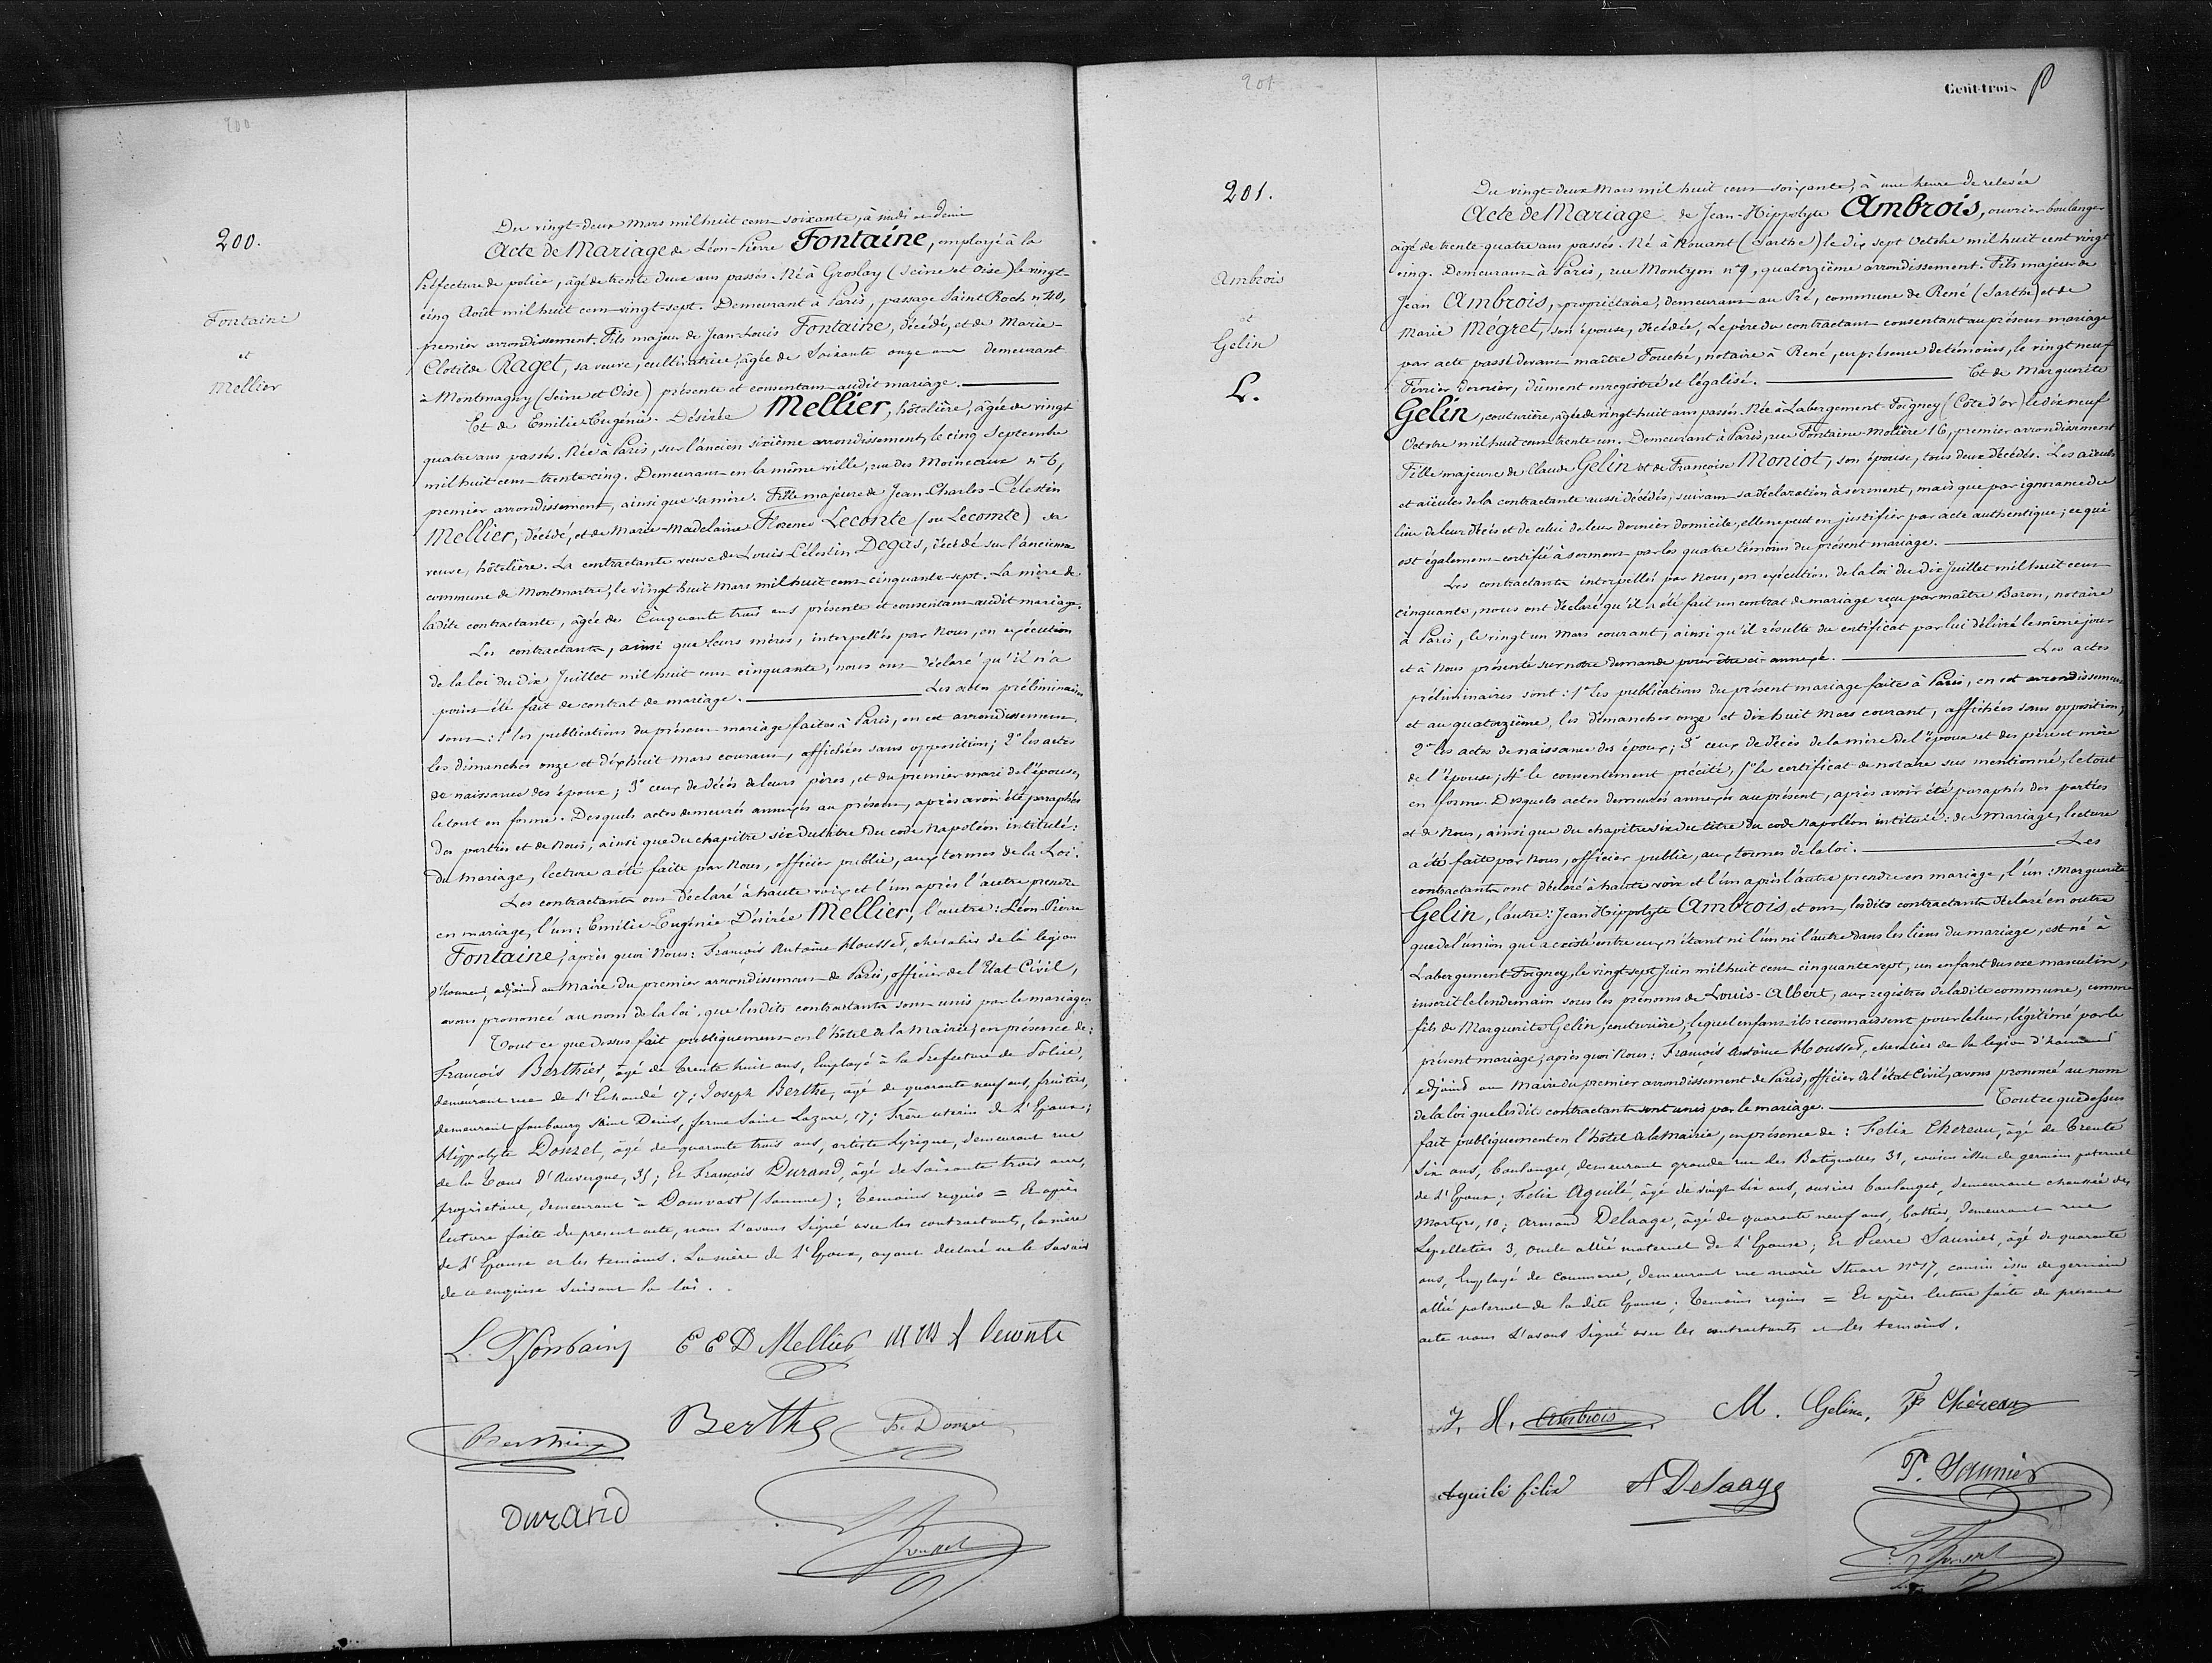 200
200.
Fontaine
et
Mellier
Du vingt-deux Mars mil huit cent soixante, à midi et demie
Acte de Mariage de Léon-Pierre Fontaine, employé à la
Préfecture de police, âgé de trente deux ans passés. Né à Groslay (Seine et Oise) le vingt-
cinq Août mil huit cent vingt-sept. Demeurant à Paris, passage Saint Roch n° 40,
premier arrondissement. Fils majeur de Jean-Louis Fontaine, décédé, et de Marie-
Clotilde Raget, sa veuve, cultivatrice, âgée de Soixante onze ans demeurant
à Montmagny (Seine et Oise) présente et consentant audit mariage.
Et de Emilie-Eugénie-Désirée Mellier, hôtelière, âgée de vingt
quatre ans passés. Née à Paris, sur l'ancien sixième arrondissement, le cinq Septembre
mil huit cent trente cinq. Demeurant en la même ville, rue des Moineaux n° 6,
premier arrondissement, ainsi que sa mère. Fille majeure de Jean-Charles-Célestin
Mellier, décédé, et de Marie-Madelaine Florence Leconte (ou Lecomte) sa
veuve, hôtelière. La contractante veuve de Louis Célestin Degas, décédé sur l'ancienne
commune de Montmartre, le vingt huit Mars mil huit cent cinquante-sept. La mère de
ladite contractante, âgée de Cinquante trois ans présente et consentant audit mariage.
Les contractants, ainsi que leurs mères, interpellés par Nous, en exécution
de la loi du dix Juillet mil huit cent cinquante, nous ont déclaré qu'il n'a
point été fait de contrat de mariage. Les actes préliminaires
sont: 1° les publications du présent mariage faites à Paris, en cet arrondissement,
les dimanches onze et dix huit mars courant, affichées sans opposition; 2° les actes
de naissance des époux; 3° ceux de décès de leurs pères, et du premier mari de l'épouse,
le tout en forme. Desquels actes demeurés annexés au présent, après avoir été paraphés
des parties et de Nous, ainsi que du chapitre six du titre du code Napoléon intitulé:
du Mariage, lecture a été faite par Nous, officier public, aux termes de la Loi.
Les contractants ont déclaré à haute voix et l'un après l'autre prendre
en mariage, l'un: Emilie-Eugénie-Désirée Mellier, l'autre: Léon-Pierre
Fontaine; après quoi Nous: François Antoine Housset, chevalier de la legion
d'honneur, adjoint au Maire du premier arrondissement de Paris, officier de l'Etat Civil,
avons prononcé au nom de la loi, que lesdits contractants sont unis par le mariage.
Tout ce que dessus fait publiquement en l'hôtel de la Mairie, en présence de:
François Berthier, âgé de trente huit ans, Employé à la Prefecture de Police,
demeurant rue de l'Echaudé 17; Joseph Berthe, âgé de quarante neuf ans, fruitier,
demeurant faubourg Saint Denis, ferme Saint Lazare, 17; Frère uterin de l'Epoux;
Hippolyte Donzel, âgé de quarante trois ans, artiste Lyrique, demeurant rue
de la Tour d'Auvergne, 35; Et François Durand, âgé de soixante trois ans,
propriétaire, demeurant à Domvast (Somme); Temoins requis = Et après
lecture faite du present acte, nous l'avons signé avec les contractants, la mère
de l'Epouse et les temoins. La mère de l'Epoux, ayant declaré ne le savoir
de ce enquise suivant la loi.
L. P Fontaine E E D Mellier M M f leconte
Berthier Berthe H. Donzel
Durand Housset
201
Cent-trois
201.
Ambrois
et
Gelin
L.
Du vingt-deux Mars mil huit cent soixante, à une heure de relevée
Acte de Mariage de Jean-Hippolyte Ambrois, ouvrier boulanger
âgé de trente quatre ans passés. Né à Rouant (Sarthe) le dix sept Octobre mil huit cent vingt
cinq. Demeurant à Paris, rue Montyon n° 9, quatorzième arrondissement. Fils majeur de
Jean Ambrois, propriétaire, demeurant au Pré, commune de René (Sarthe) et de
Marie Mégret, son épouse, décédée, Le père du contractant consentant au présent mariage
par acte passé devant maître Fouché, notaire à René, en présence de témoins, le vingt neuf
Février dernier, dûment enregistré et légalisé. Et de Marguerite
Gelin, couturière, âgée de vingt-huit ans passés. Née à Labergement-Foigney (Côte d'or) le dix neuf
Octobre mil huit cent trente un. Demeurant à Paris, rue Fontaine-Molière 16, premier arrondissement
Fille majeure de Claude Gelin et de Françoise Moniot, son épouse, tous deux décédés. Les aïeuls
et aïeules de la contractante aussi décédés, suivant sa déclaration à serment, mais que par ignorance du
lieu de leur décès et de celui de leur dernier domicile, elle ne peut en justifier par acte authentique; ce qui
est également certifié à serment par les quatre témoins du présent mariage.
Les contractants interpellés par Nous, en exécution de la loi du dix Juillet mil huit cent
cinquante, nous ont déclaré qu'il a été fait un contrat de mariage reçu par maître Baron, notaire
à Paris, le vingt un Mars courant, ainsi qu'il résulte du certificat par lui délivré le même jour
et à Nous présenté sur notre demande pour être ci-annexé. Les actes
préliminaires sont: 1° les publications du présent mariage faites à Paris, en cet arrondissement
et au quatorzième, les dimanches onze et dix huit Mars courant, affichées sans opposition;
2° les actes de naissance des époux; 3° ceux de décès de la mère de l'époux et des père et mère
de l'épouse; 4° le consentement précité, 5° le certificat de notaire sus mentionné, le tout
en forme. Desquels actes demeurés annexés au présent, après avoir été paraphés des parties
et de Nous, ainsi que du chapitre six du titre du code Napoléon intitulé: du Mariage, lecture
a été faite par Nous, officier public, aux termes de la loi. Les
contractants ont déclaré à haute voix et l'un après l'autre prendre en mariage, l'un: Marguerite
Gelin, l'autre: Jean Hippolyte Ambrois, et ont, lesdits contractants déclaré en outre
que de l'union qui a existé entre eux, n'étant ni l'un ni l'autre dans les liens du mariage, est né à
Labergement-Foigney, le vingt-sept Juin mil huit cent cinquante sept, un enfant du sexe masculin,
inscrit le lendemain sous les prénoms de Louis-Albert, aux registres de ladite commune, comme
fils de Marguerite Gelin, couturière, lequel enfant ils reconnaissent pour le leur, légitimé par le
présent mariage; après quoi Nous: François Antoine Housset, chevalier de la legion d'honneur
adjoint au Maire du premier arrondissement de Paris, officier de l'état Civil, avons prononcé au nom
de la loi que lesdits contractants sont unis par le mariage. Tout ce que dessus
fait publiquement en l'hôtel de la Mairie, en présence de: Felix Chereau, âgé de trente
six ans, boulanger, demeurant grande rue des Batignolles 31, cousin issu de germain paternel
de l'Epoux; Felix Aguilé, âgé de vingt six ans, ouvrier boulanger, demeurant chaussée des
Martyrs, 10; Armand Delaage, âgé de quarante neuf ans, bottier, demeurant rue
Lepelletier 3, oncle allié maternel de l'Epouse; Et Pierre Saunier, âgé de quarante
ans, Employé de commerce, demeurant rue Marie Stuart n° 17, cousin issu de germain
allié paternel de ladite Epouse; Temoins requis = Et après lecture faite du present
acte nous l'avons signé avec les contractants et les temoins.
J. H. Ambrois M. Gelin, F Chéreau
Aguilé félix A Delaage P. Saunier
Housset